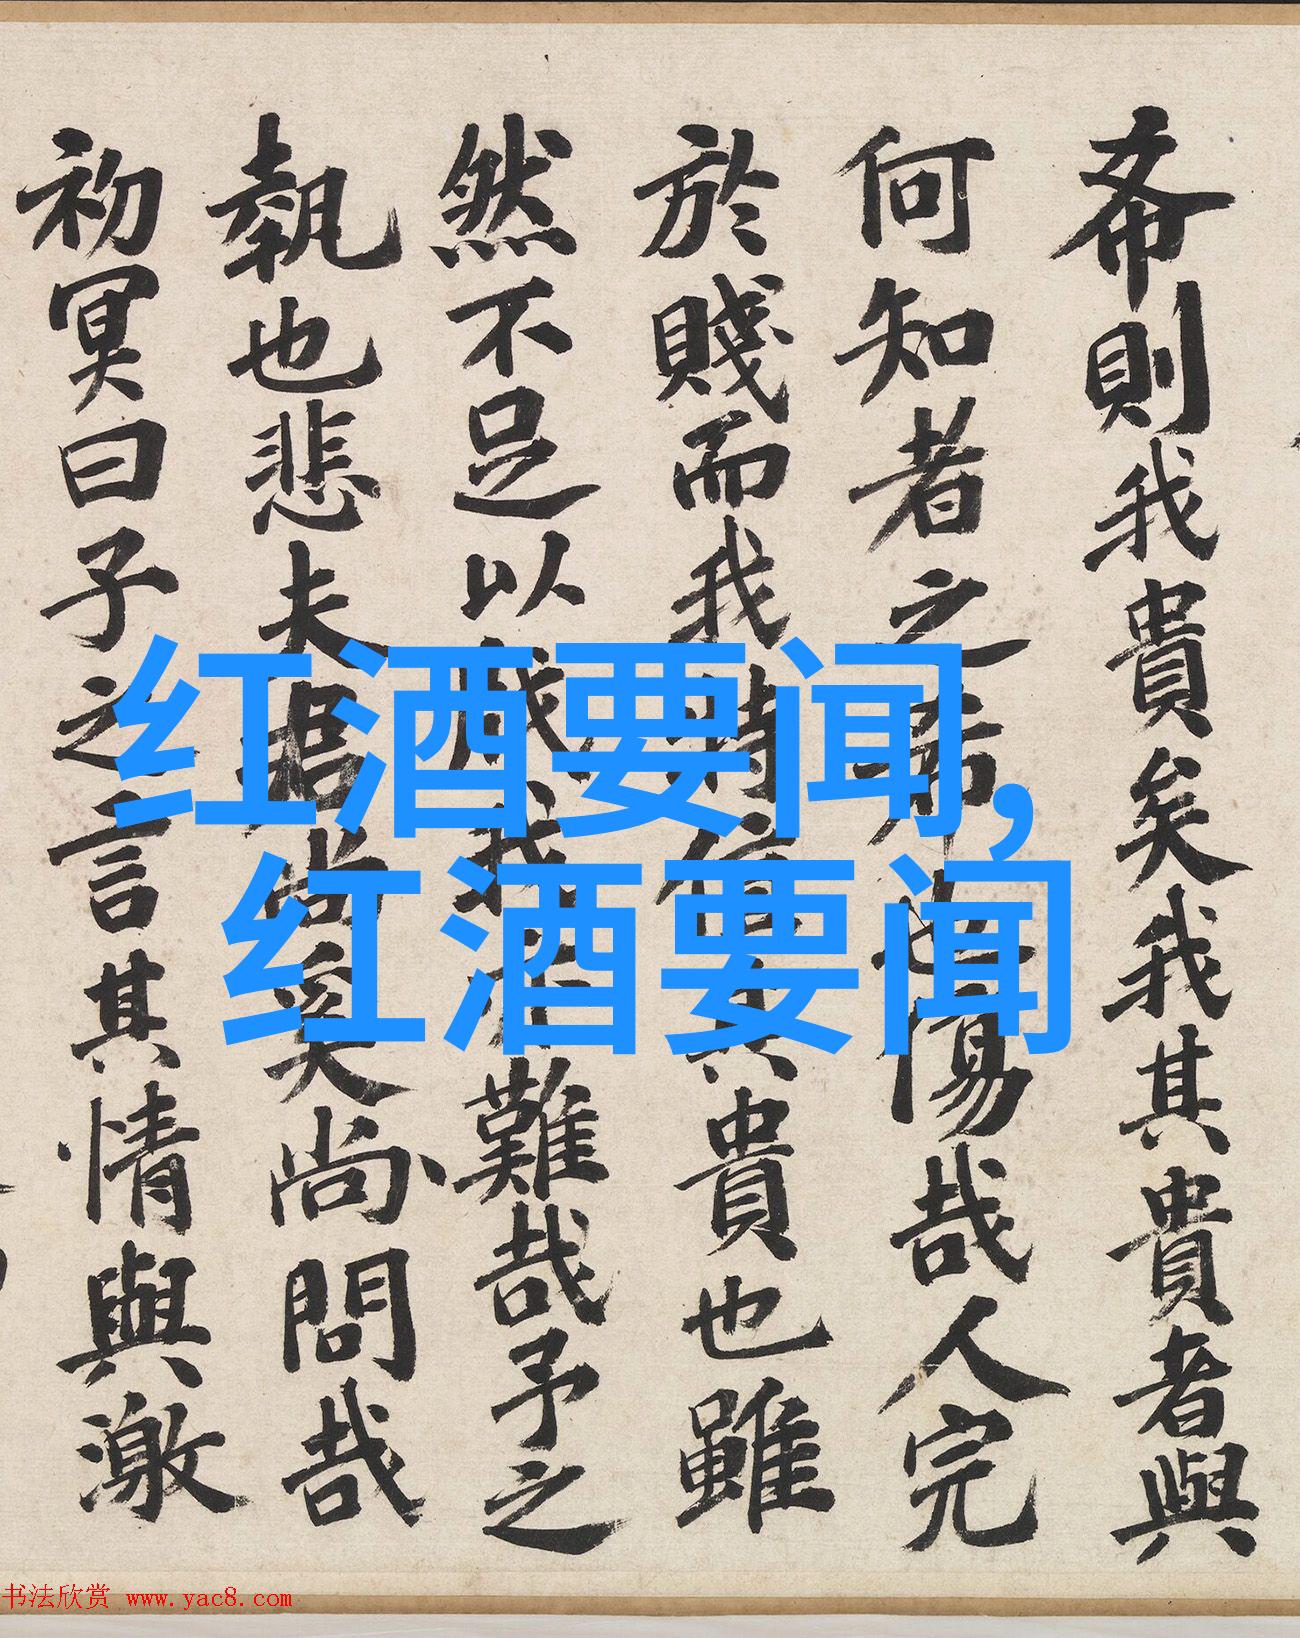 希則我貴矣我其貴者與
何知者之希也傷哉人完
於賤而我時其貴也雖
然不足以我難哉予之
執也悲夫尚奚尚問哉
初冥曰子之言其情與激
红酒要闻,
红酒要闻
书法欣赏 www.yac8.com